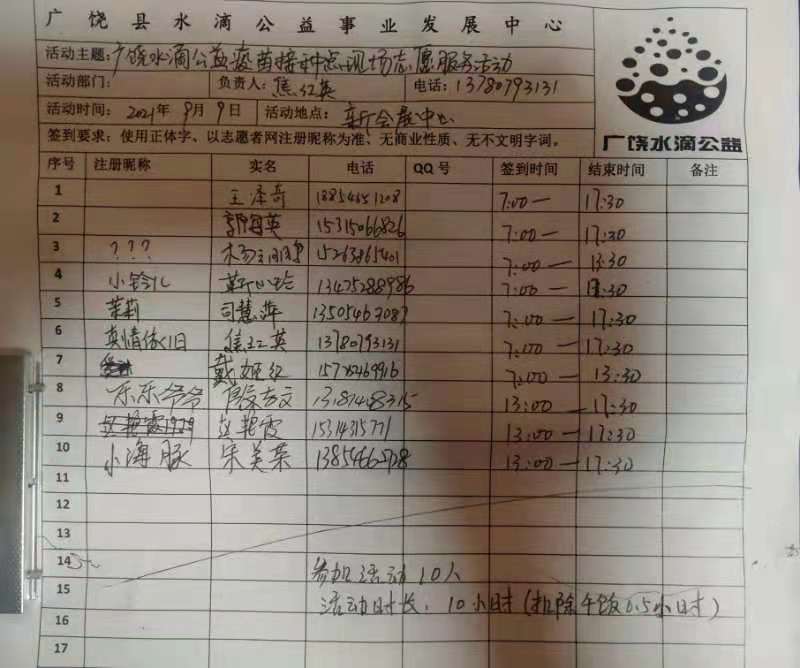 广饶县水滴公益事业发展中心
活动主题：广饶水滴公益疫苗接种点现场志愿服务活动
活动部门： 负责人：焦红英 电话：13780793131
活动时间：2021年9月9日 活动地点：新会展中心
签到要求：使用正体字、以志愿者网注册昵称为准、无商业性质、无不文明字词。
广饶水滴公益
序号 注册昵称 实名 电话 QQ号 签到时间 结束时间 备注
1 王泽奇 13854651208 7:00— 17:30
2 郭海英 15315066826 7:00— 17:30
3 ？？？ 15263865401 7:00— 13:30
4 小铃儿 靳心玲 13475288986 7:00— 13:30
5 茉莉 司慧萍 13505467087 7:00— 17:30
6 真情依旧 焦红英 13780793131 7:00— 17:30
7 戴姬红 7:00— 13:30
8 东东爷爷 13:00— 17:30
9 赵艳霞1979 赵艳霞 15314315771 13:00— 17:30
10 小海豚 宋美荣 13:00— 17:30
11
12
13
14 参加活动10人
15 活动时长：10小时（扣除午饭0.5小时）
16
17